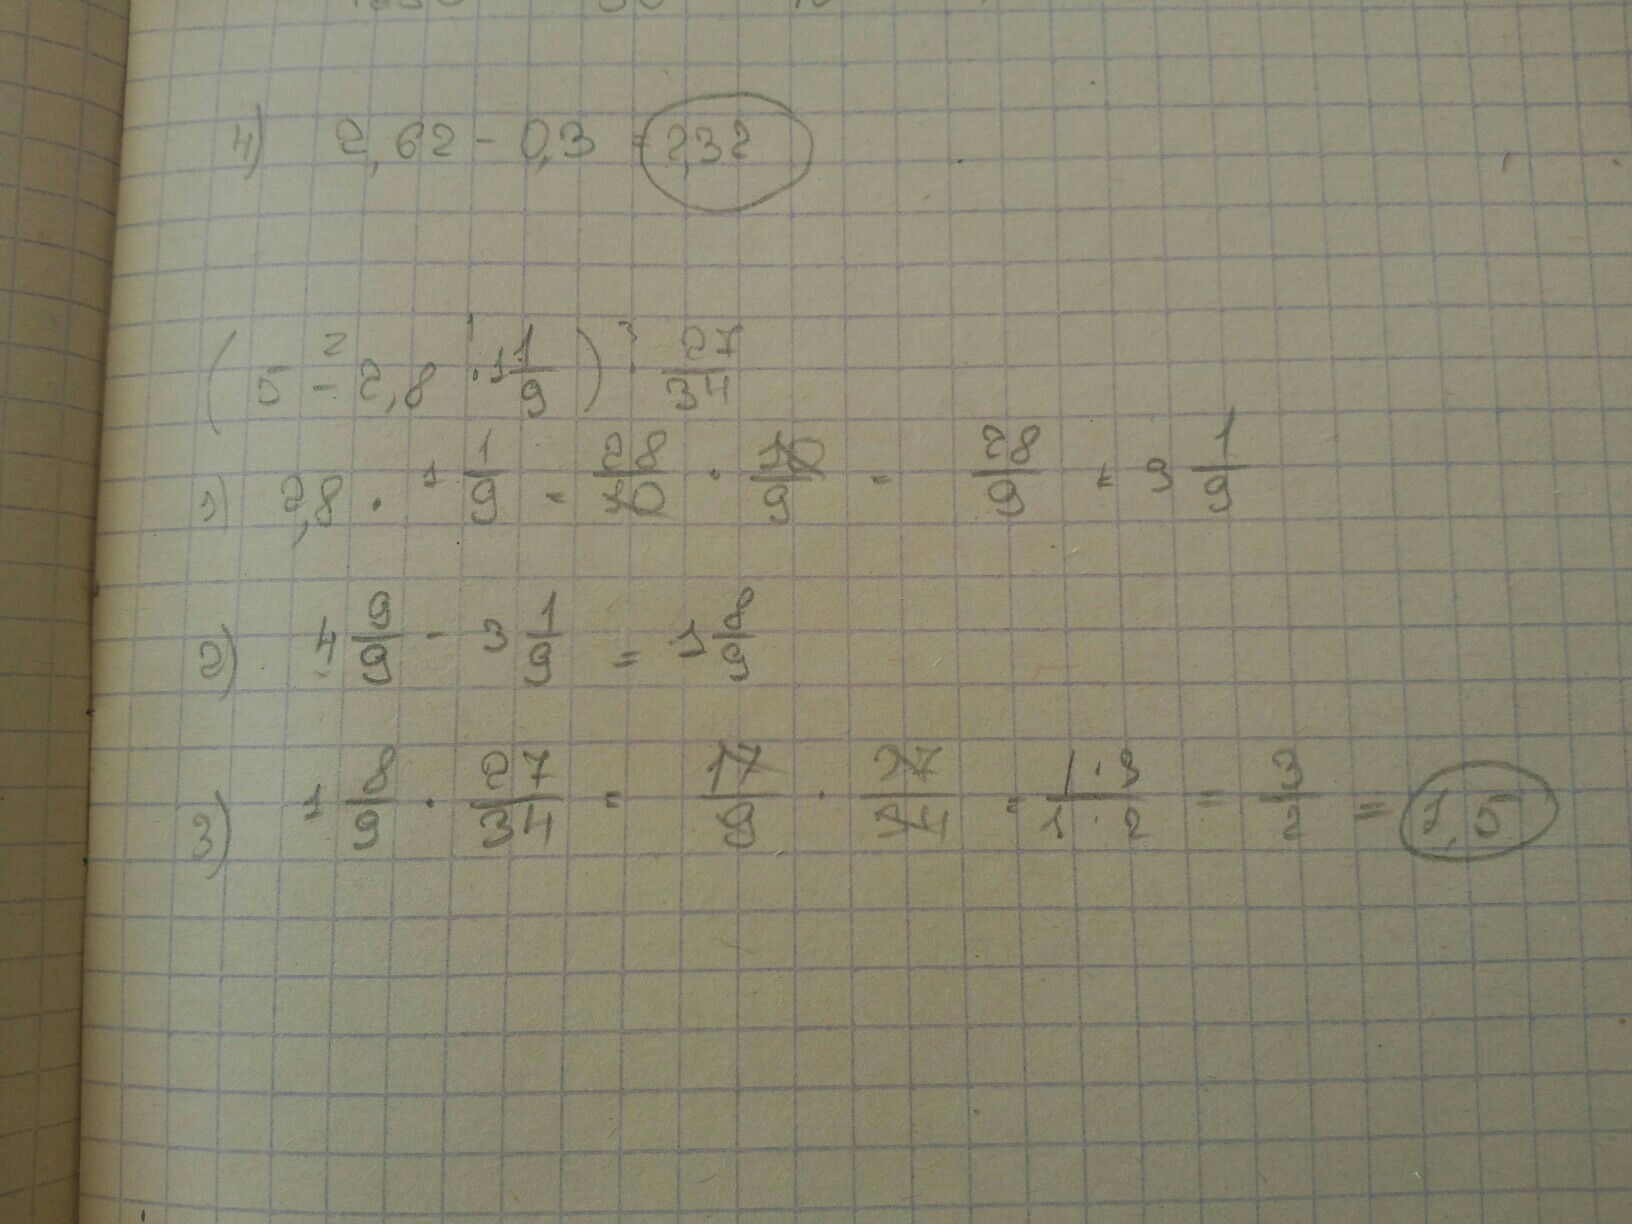 4) 2,62 - 0,3 = 2,32
(5 - 2,8 · 1 1/9) · 27/34
1) 2,8 · 1 1/9 = 28/10 · 10/9 = 28/9 = 3 1/9
2) 4 9/9 - 3 1/9 = 1 8/9
3) 1 8/9 · 27/34 = 17/9 · 27/34 = 1·3/1·2 = 3/2 = 1,5